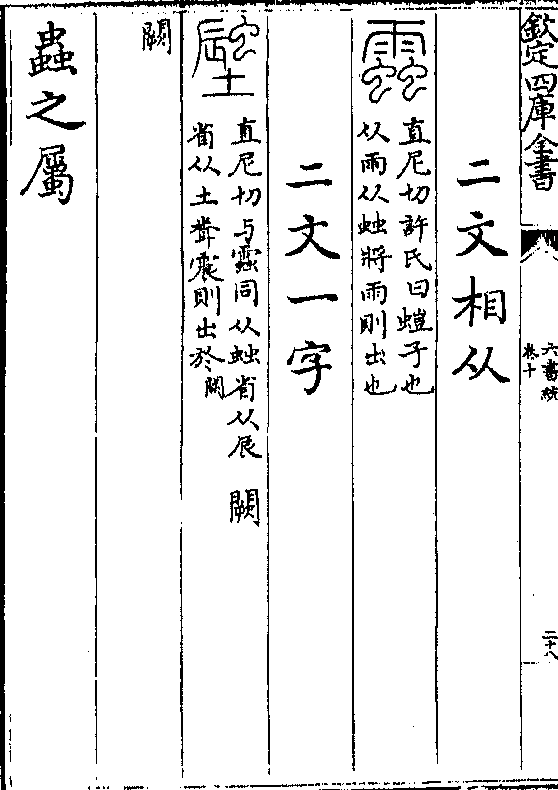 欽定四庫全書
六書統
卷十
二十八
二文相从
直尼切許氏曰螘子也
从雨从䖵將雨則出也
二文一字
直尼切与同从䖵省从辰 闕
省从土震則出於闕
闕
蟲之屬